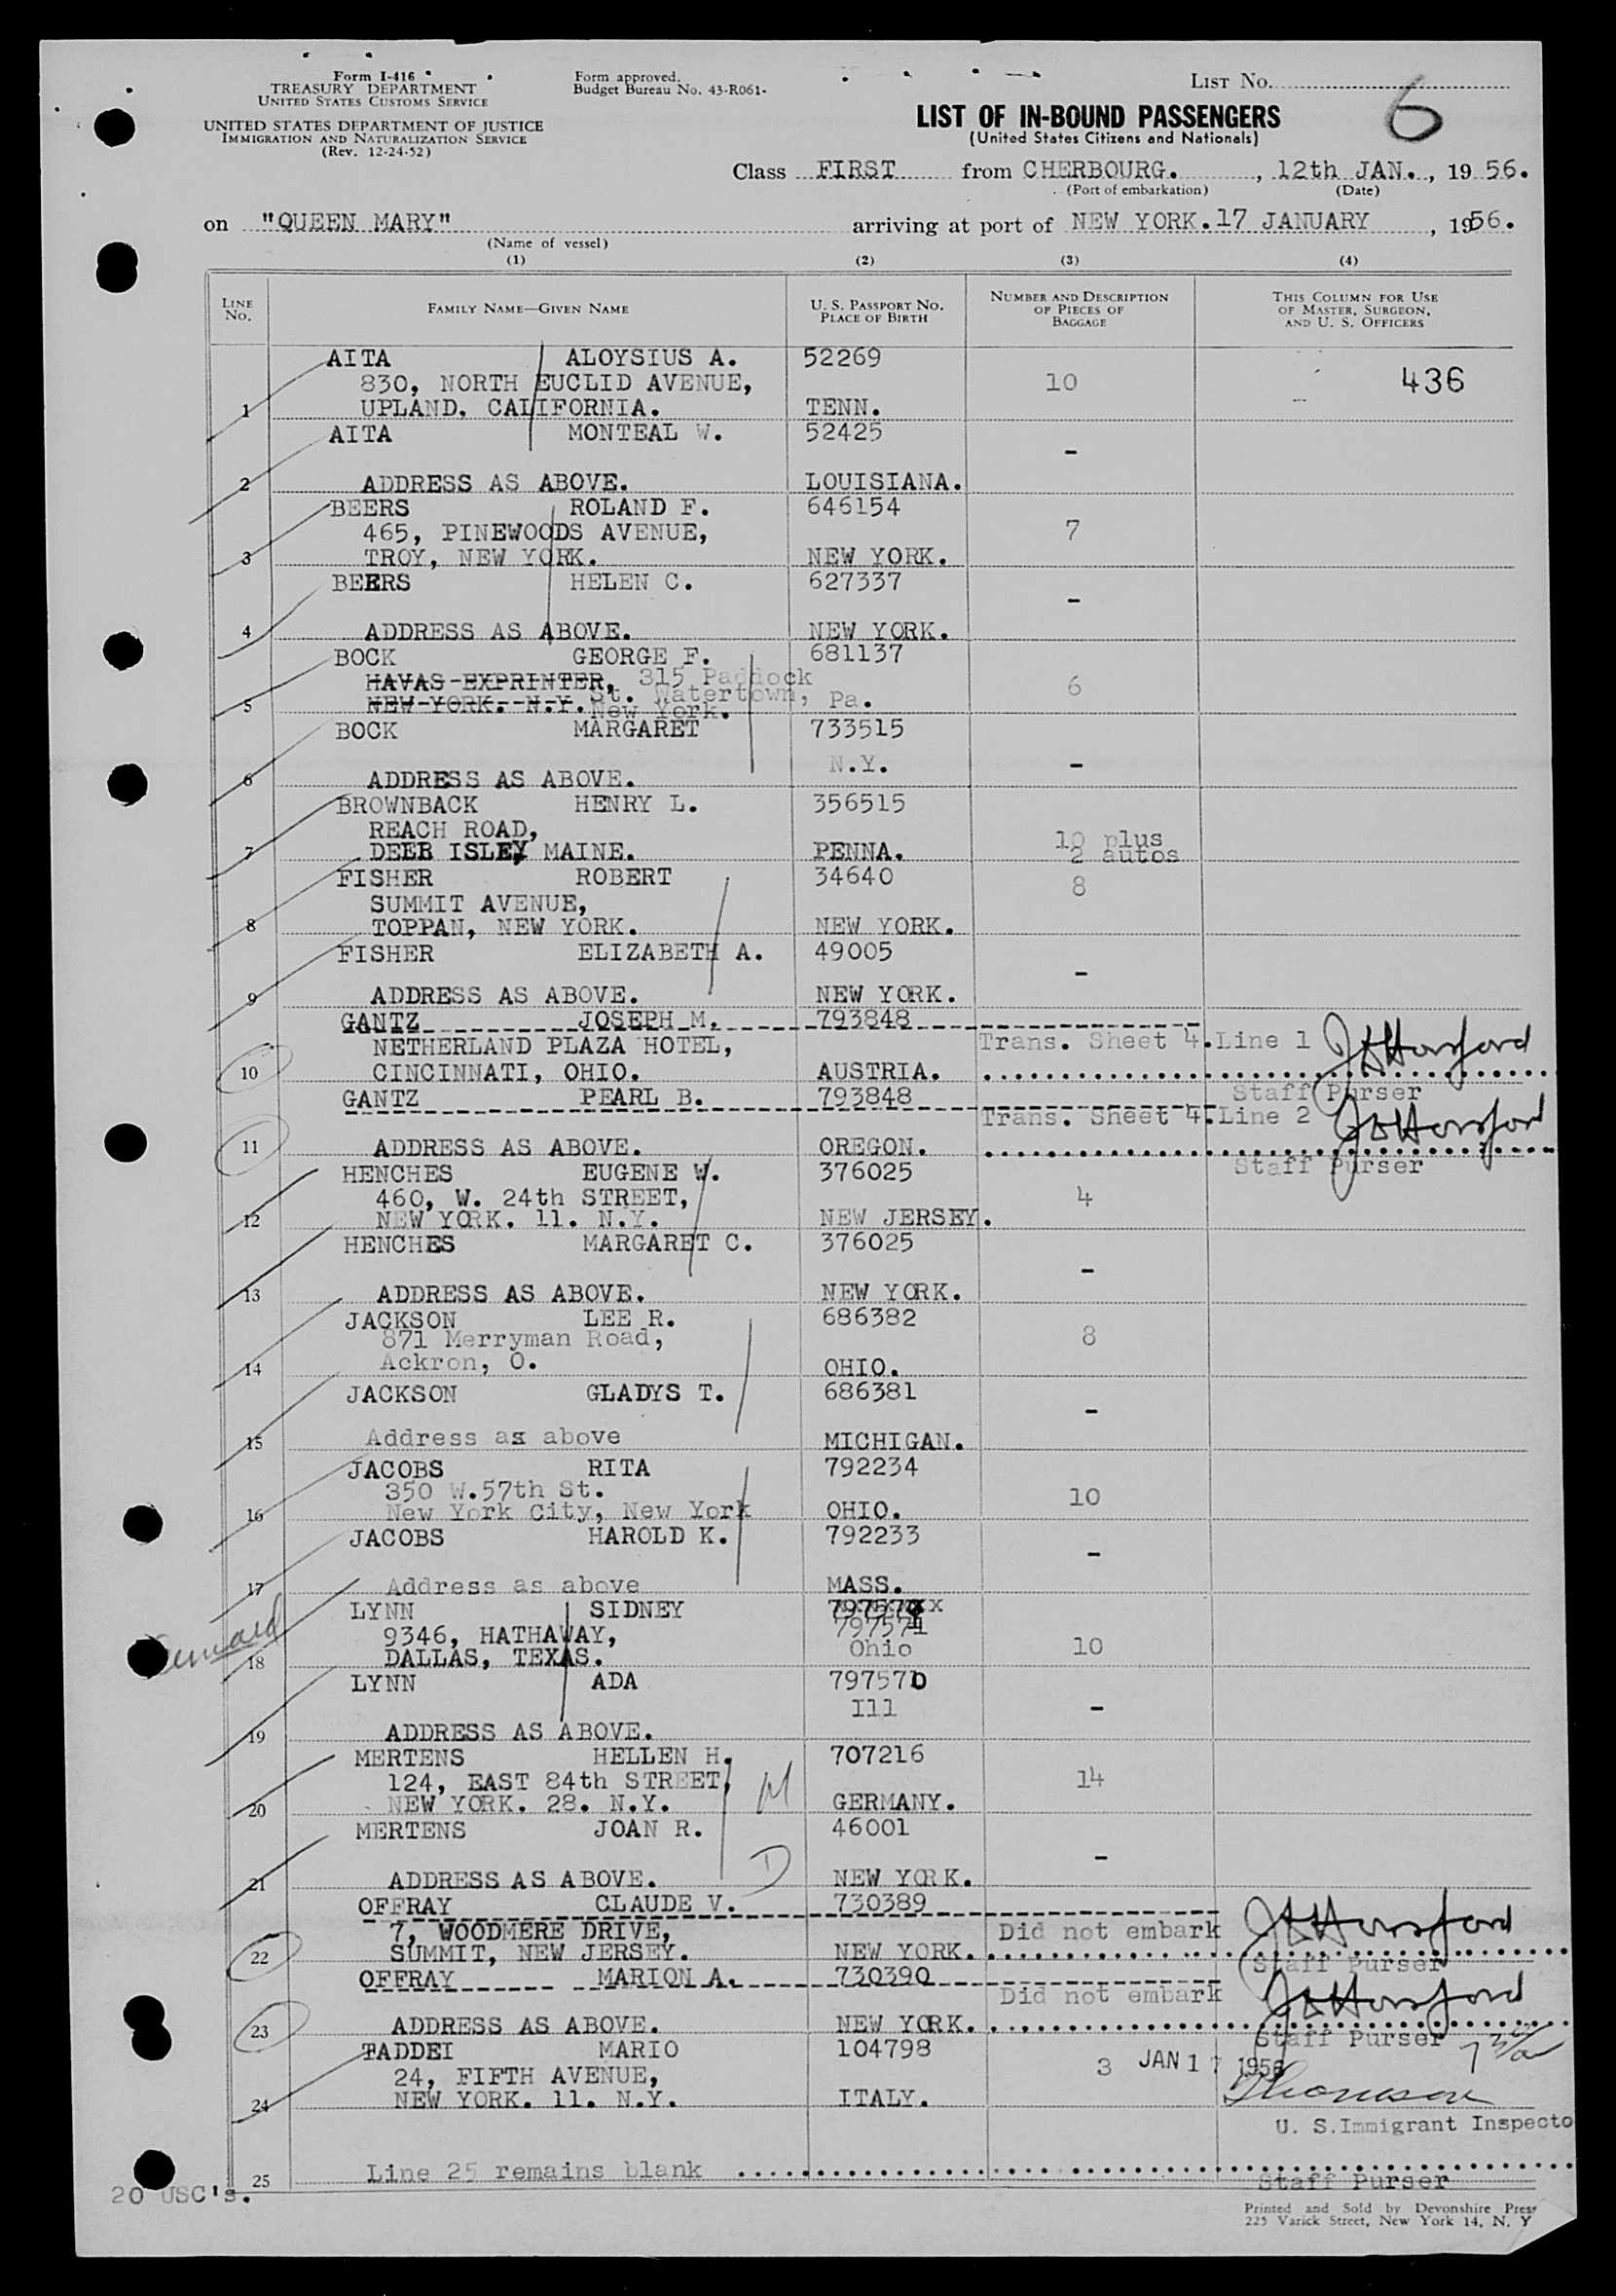 Form I-416
TREASURY DEPARTMENT
UNITED STATES CUSTOMS SERVICE
UNITED STATES DEPARTMENT OF JUSTICE
IMMIGRATION AND NATURALIZATION SERVICE
(Rev. 12-24-52)
Form approved.
Budget Bureau No. 43-R061-
LIST No.
6
LIST OF IN-BOUND PASSENGERS
(United States Citizens and Nationals)
Class FIRST from CHERBOURG. , 12th JAN. , 19 56.
(Port of embarkation) (Date)
on "QUEEN MARY" arriving at port of NEW YORK. 17 JANUARY , 1956.
(Name of vessel)
(1) (2) (3) (4)
LINE No. FAMILY NAME—GIVEN NAME U. S. PASSPORT No. PLACE OF BIRTH NUMBER AND DESCRIPTION OF PIECES OF BAGGAGE THIS COLUMN FOR USE OF MASTER, SURGEON, AND U. S. OFFICERS
AITA ALOYSIUS A. 52269
830, NORTH EUCLID AVENUE, 10 436
1 UPLAND. CALIFORNIA. TENN.
AITA MONTEAL W. 52425
-
2 ADDRESS AS ABOVE. LOUISIANA.
BEERS ROLAND F. 646154
465, PINEWOODS AVENUE, 7
3 TROY, NEW YORK. NEW YORK.
BEERS HELEN C. 627337
-
4 ADDRESS AS ABOVE. NEW YORK.
BOCK GEORGE F. 681137
HAVAS-EXPRINTER, 315 Paddock 6
5 NEW-YORK. N.Y. St. Watertown, Pa.
New York.
BOCK MARGARET 733515
N.Y. -
6 ADDRESS AS ABOVE.
BROWNBACK HENRY L. 356515
REACH ROAD, 10 plus
7 DEER ISLE, MAINE. PENNA. 2 autos
FISHER ROBERT 34640
SUMMIT AVENUE, 8
8 TOPPAN, NEW YORK. NEW YORK.
FISHER ELIZABETH A. 49005
-
9 ADDRESS AS ABOVE. NEW YORK.
GANTZ JOSEPH M. 793848
NETHERLAND PLAZA HOTEL, Trans. Sheet 4.Line 1 JHHorsford
10 CINCINNATI, OHIO. AUSTRIA.
Staff Purser
GANTZ PEARL B. 793848
Trans. Sheet 4.Line 2 JHHorsford
11 ADDRESS AS ABOVE. OREGON.
Staff Purser
HENCHES EUGENE W. 376025
460, W. 24th STREET, 4
12 NEW YORK. 11. N.Y. NEW JERSEY.
HENCHES MARGARET C. 376025
-
13 ADDRESS AS ABOVE. NEW YORK.
JACKSON LEE R. 686382
871 Merryman Road, 8
14 Ackron, O. OHIO.
JACKSON GLADYS T. 686381
-
15 Address as above MICHIGAN.
JACOBS RITA 792234
350 W.57th St. 10
16 New York City, New York OHIO.
JACOBS HAROLD K. 792233
-
17 Address as above MASS.
LYNN SIDNEY
9346, HATHAWAY, 797571
18 DALLAS, TEXAS. Ohio 10
LYNN ADA 797570
Ill -
19 ADDRESS AS ABOVE.
MERTENS HELLEN H. 707216
124, EAST 84th STREET, M 14
20 NEW YORK. 28. N.Y. GERMANY.
MERTENS JOAN R. 46001
D -
21 ADDRESS AS ABOVE. NEW YORK.
OFFRAY CLAUDE V. 730389
7, WOODMERE DRIVE, Did not embark JHHorsford
22 SUMMIT, NEW JERSEY. NEW YORK.
Staff Purser
OFFRAY MARION A. 730390
Did not embark JHHorsford
23 ADDRESS AS ABOVE. NEW YORK.
Staff Purser
TADDEI MARIO 104798
24, FIFTH AVENUE, 3 JAN 17 1956
24 NEW YORK. 11. N.Y. ITALY. Thomson
U. S.Immigrant Inspecto
25 Line 25 remains blank
Staff Purser
20 USC's.
Printed and Sold by Devonshire Press
225 Varick Street, New York 14, N. Y